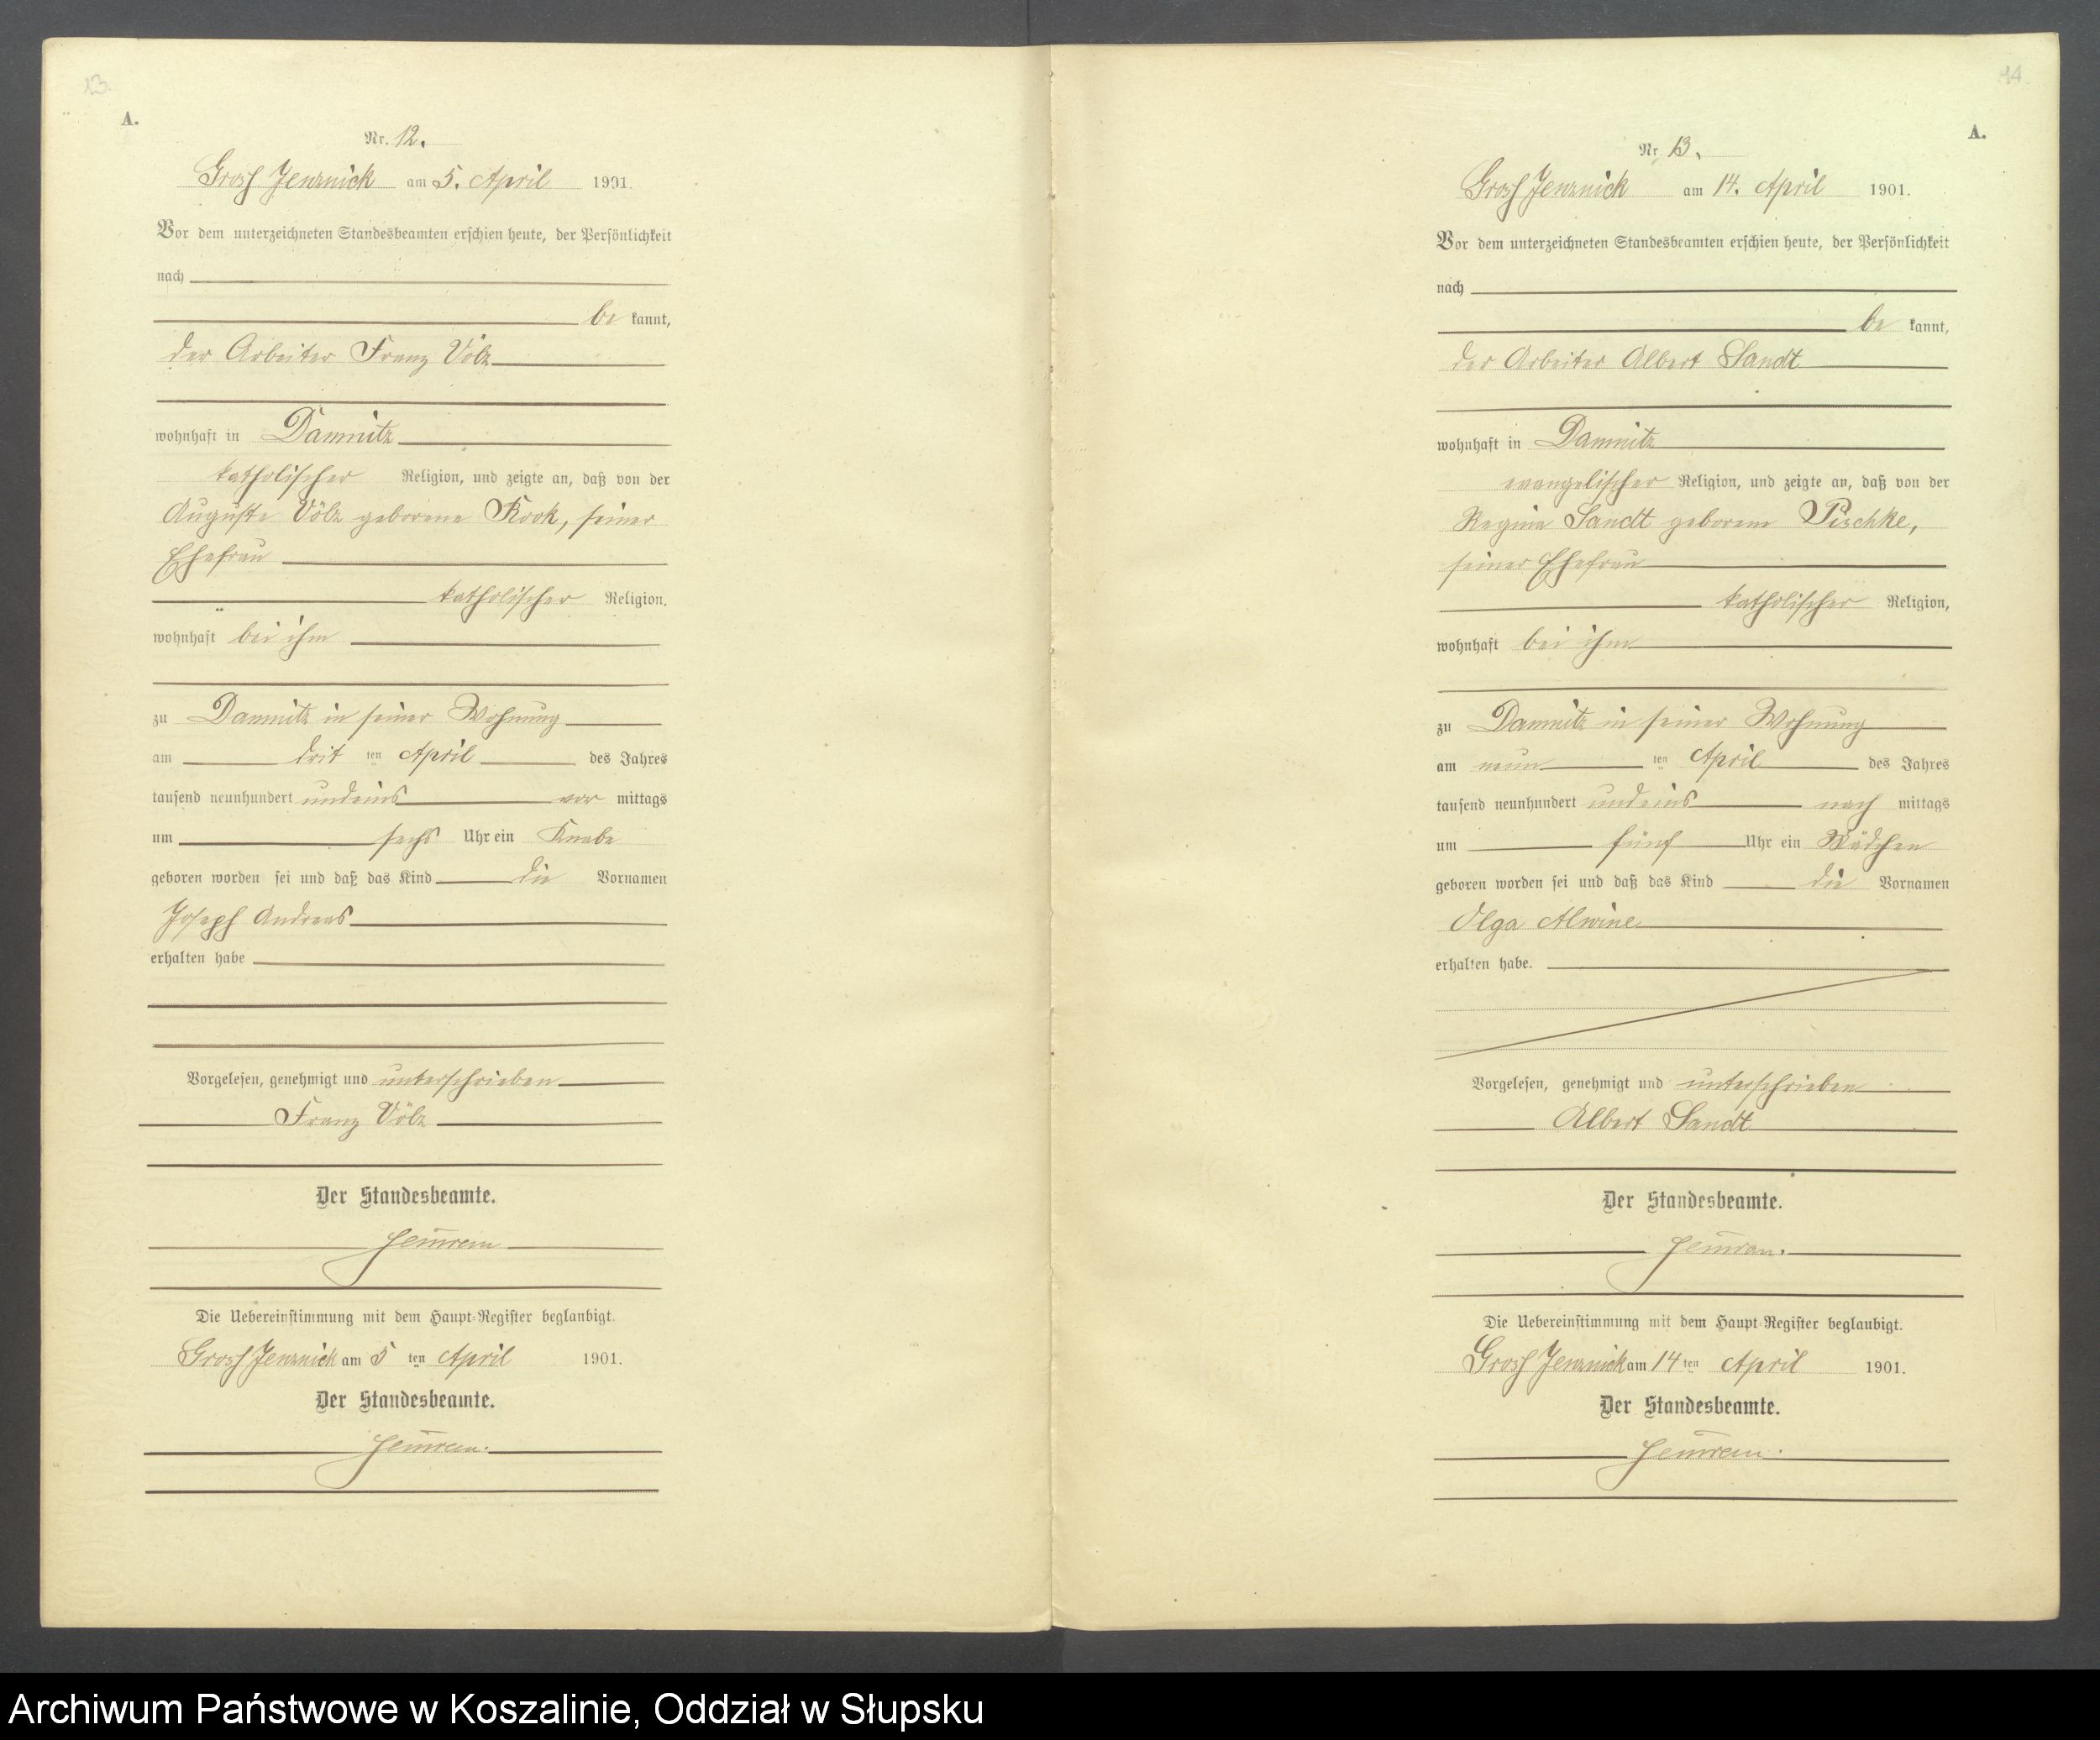 13.
A.
Nr. 12.
Gross Jenznick am 5. April 1901.
Vor dem unterzeichneten Standesbeamten erschien heute, der Persönlichkeit
nach
be kannt,
der Arbeiter Franz Völz
wohnhaft in Damnitz
katholischer Religion, und zeigte an, daß von der
Auguste Völz geborene Kook, seiner
Ehefrau
katholischer Religion,
wohnhaft bei ihm
zu Damnitz in seiner Wohnung
am drit ten April des Jahres
tausend neunhundert undeins vor mittags
um sechs Uhr ein Knabe
geboren worden sei und daß das Kind die Vornamen
Joseph Andreas
erhalten habe
Vorgelesen, genehmigt und unterschrieben
Franz Völz
Der Standesbeamte.
Die Uebereinstimmung mit dem Haupt-Register beglaubigt.
Gross Jenznick am 5 ten April 1901.
Der Standesbeamte.
14.
A.
Nr. 13.
Gross Jenznick am 14. April 1901.
Vor dem unterzeichneten Standesbeamten erschien heute, der Persönlichkeit
nach
be kannt,
der Arbeiter Albert Sandt
wohnhaft in Damnitz
evangelischer Religion, und zeigte an, daß von der
Regine Sandt geborene Pischke,
seiner Ehefrau
katholischer Religion,
wohnhaft bei ihm
zu Damnitz in seiner Wohnung
am neun ten April des Jahres
tausend neunhundert undeins nach mittags
um fünf Uhr ein Mädchen
geboren worden sei und daß das Kind die Vornamen
Olga Alwine
erhalten habe.
Vorgelesen, genehmigt und unterschrieben
Albert Sandt
Der Standesbeamte.
Die Uebereinstimmung mit dem Haupt-Register beglaubigt.
Gross Jenznick am 14 ten April 1901.
Der Standesbeamte.
Archiwum Państwowe w Koszalinie, Oddział w Słupsku